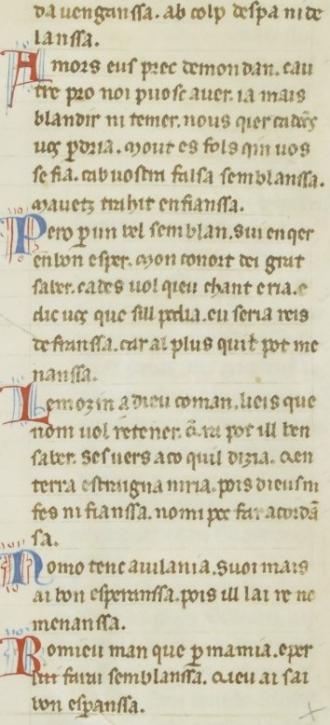 da uenganssa. ab colp despa ni de
lanssa.
Amors eus prec demon dan. cau
tre pro noi puosc auer. ia mais
blandir ni temer. nous qier
uos ꝑdria. mout es fols qin uos
se fia. cab uostra falsa semblanssa.
mauetz trahit enfianssa.
Pero ꝑ un bel semblan. sui enqer
en bon esper. mon conort dei grat
saber. cades uol qieu chant e ria. e
dic uos que sill podia. eu seria reis
de franssa. car al plus quil pot me
nanssa.
Lemozin a dieu coman. lieis que
nom uol retener. ill ben
saber. ses uers aco quil dizia. qen
terra estraigna niria. pois dieus ni
fes ni fianssa. nomi poc far acordā
sa.
Nomo tenc auilania. suoi mais
ai bon esperanssa. pois ill lai re no
menanssa.
Romieu man que ꝑ mamia. e ꝑ er
farai semblanssa. qieu ai sai
bon esꝑanssa.